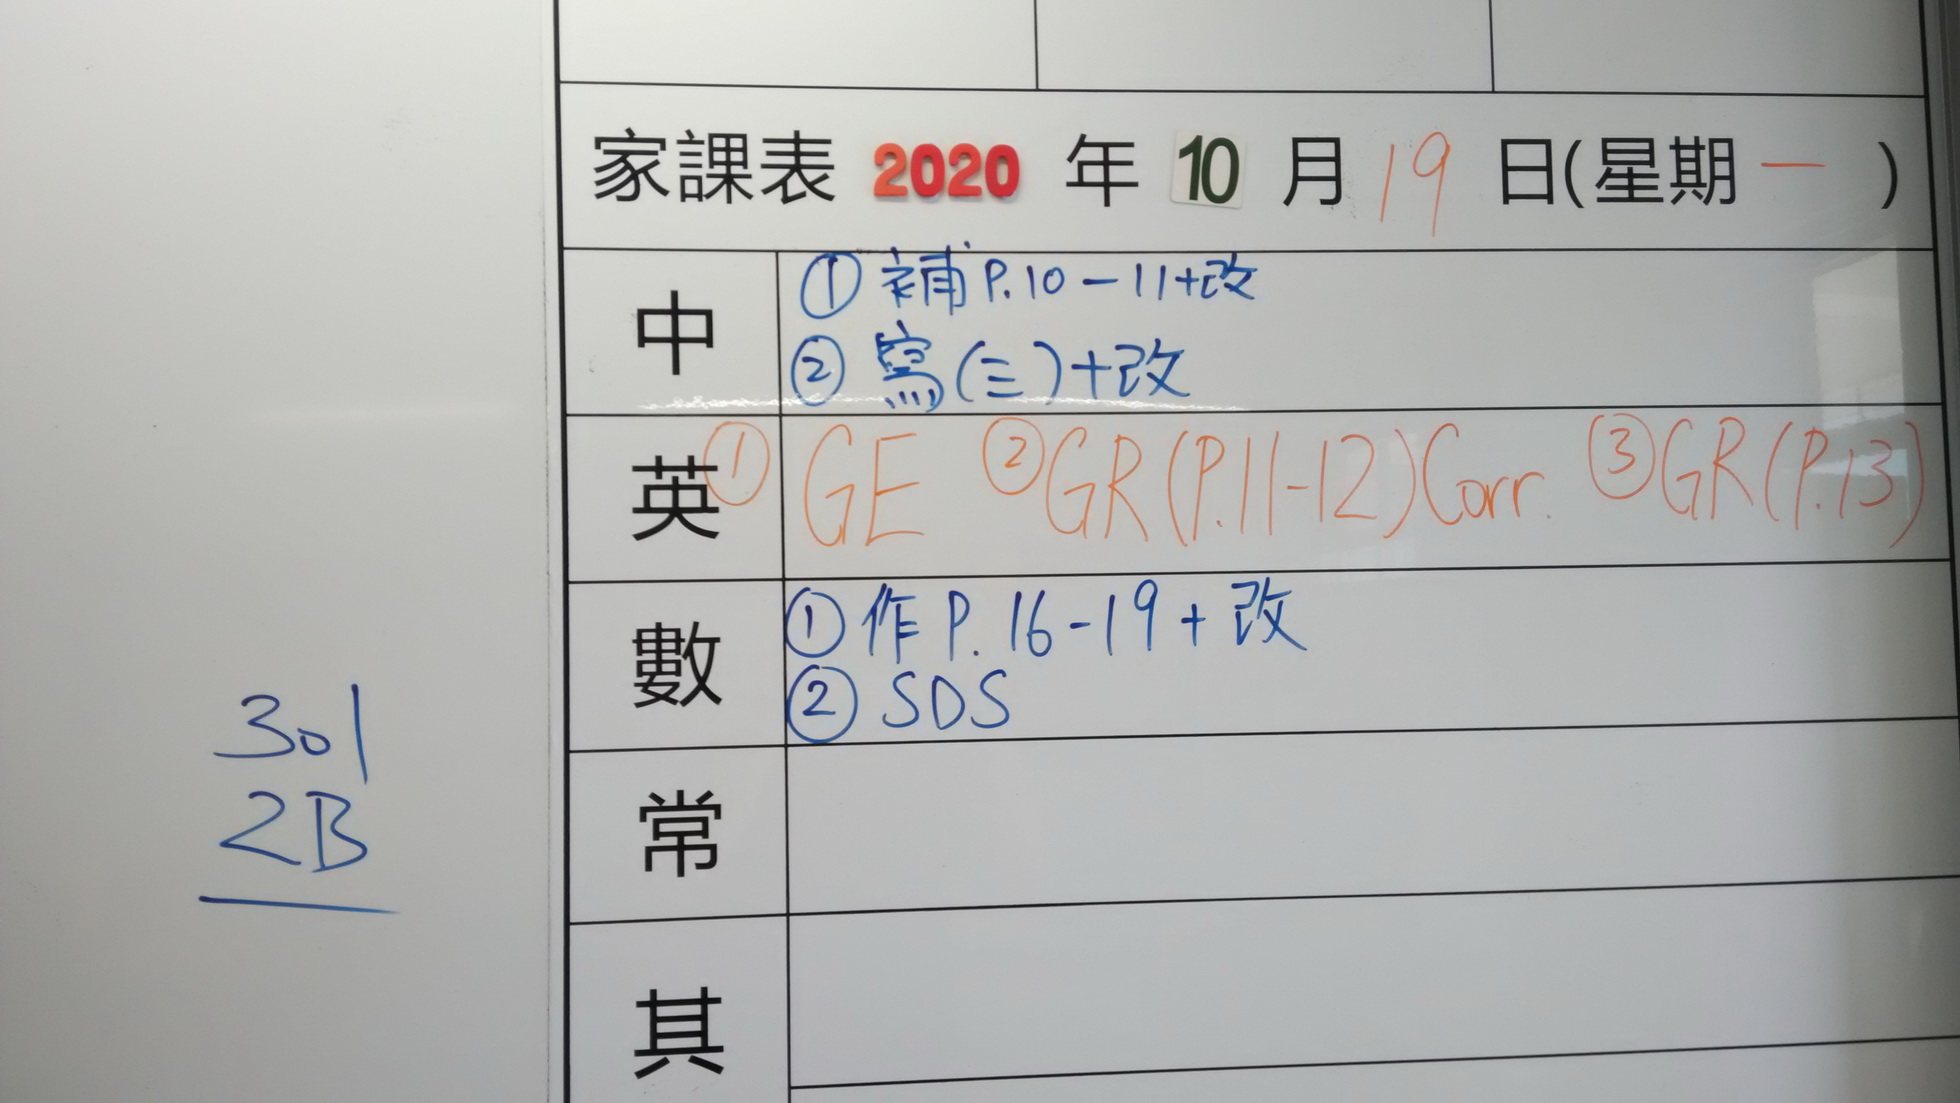 家課表 2020 年 10 月 19 日(星期一)
中
① 補P.10-11+改
② 寫(三)+改
英
① GE ②GR(P.11-12)Corr. ③GR(P.13)
數
①作P.16-19+改
②SDS
常
其
301
2B